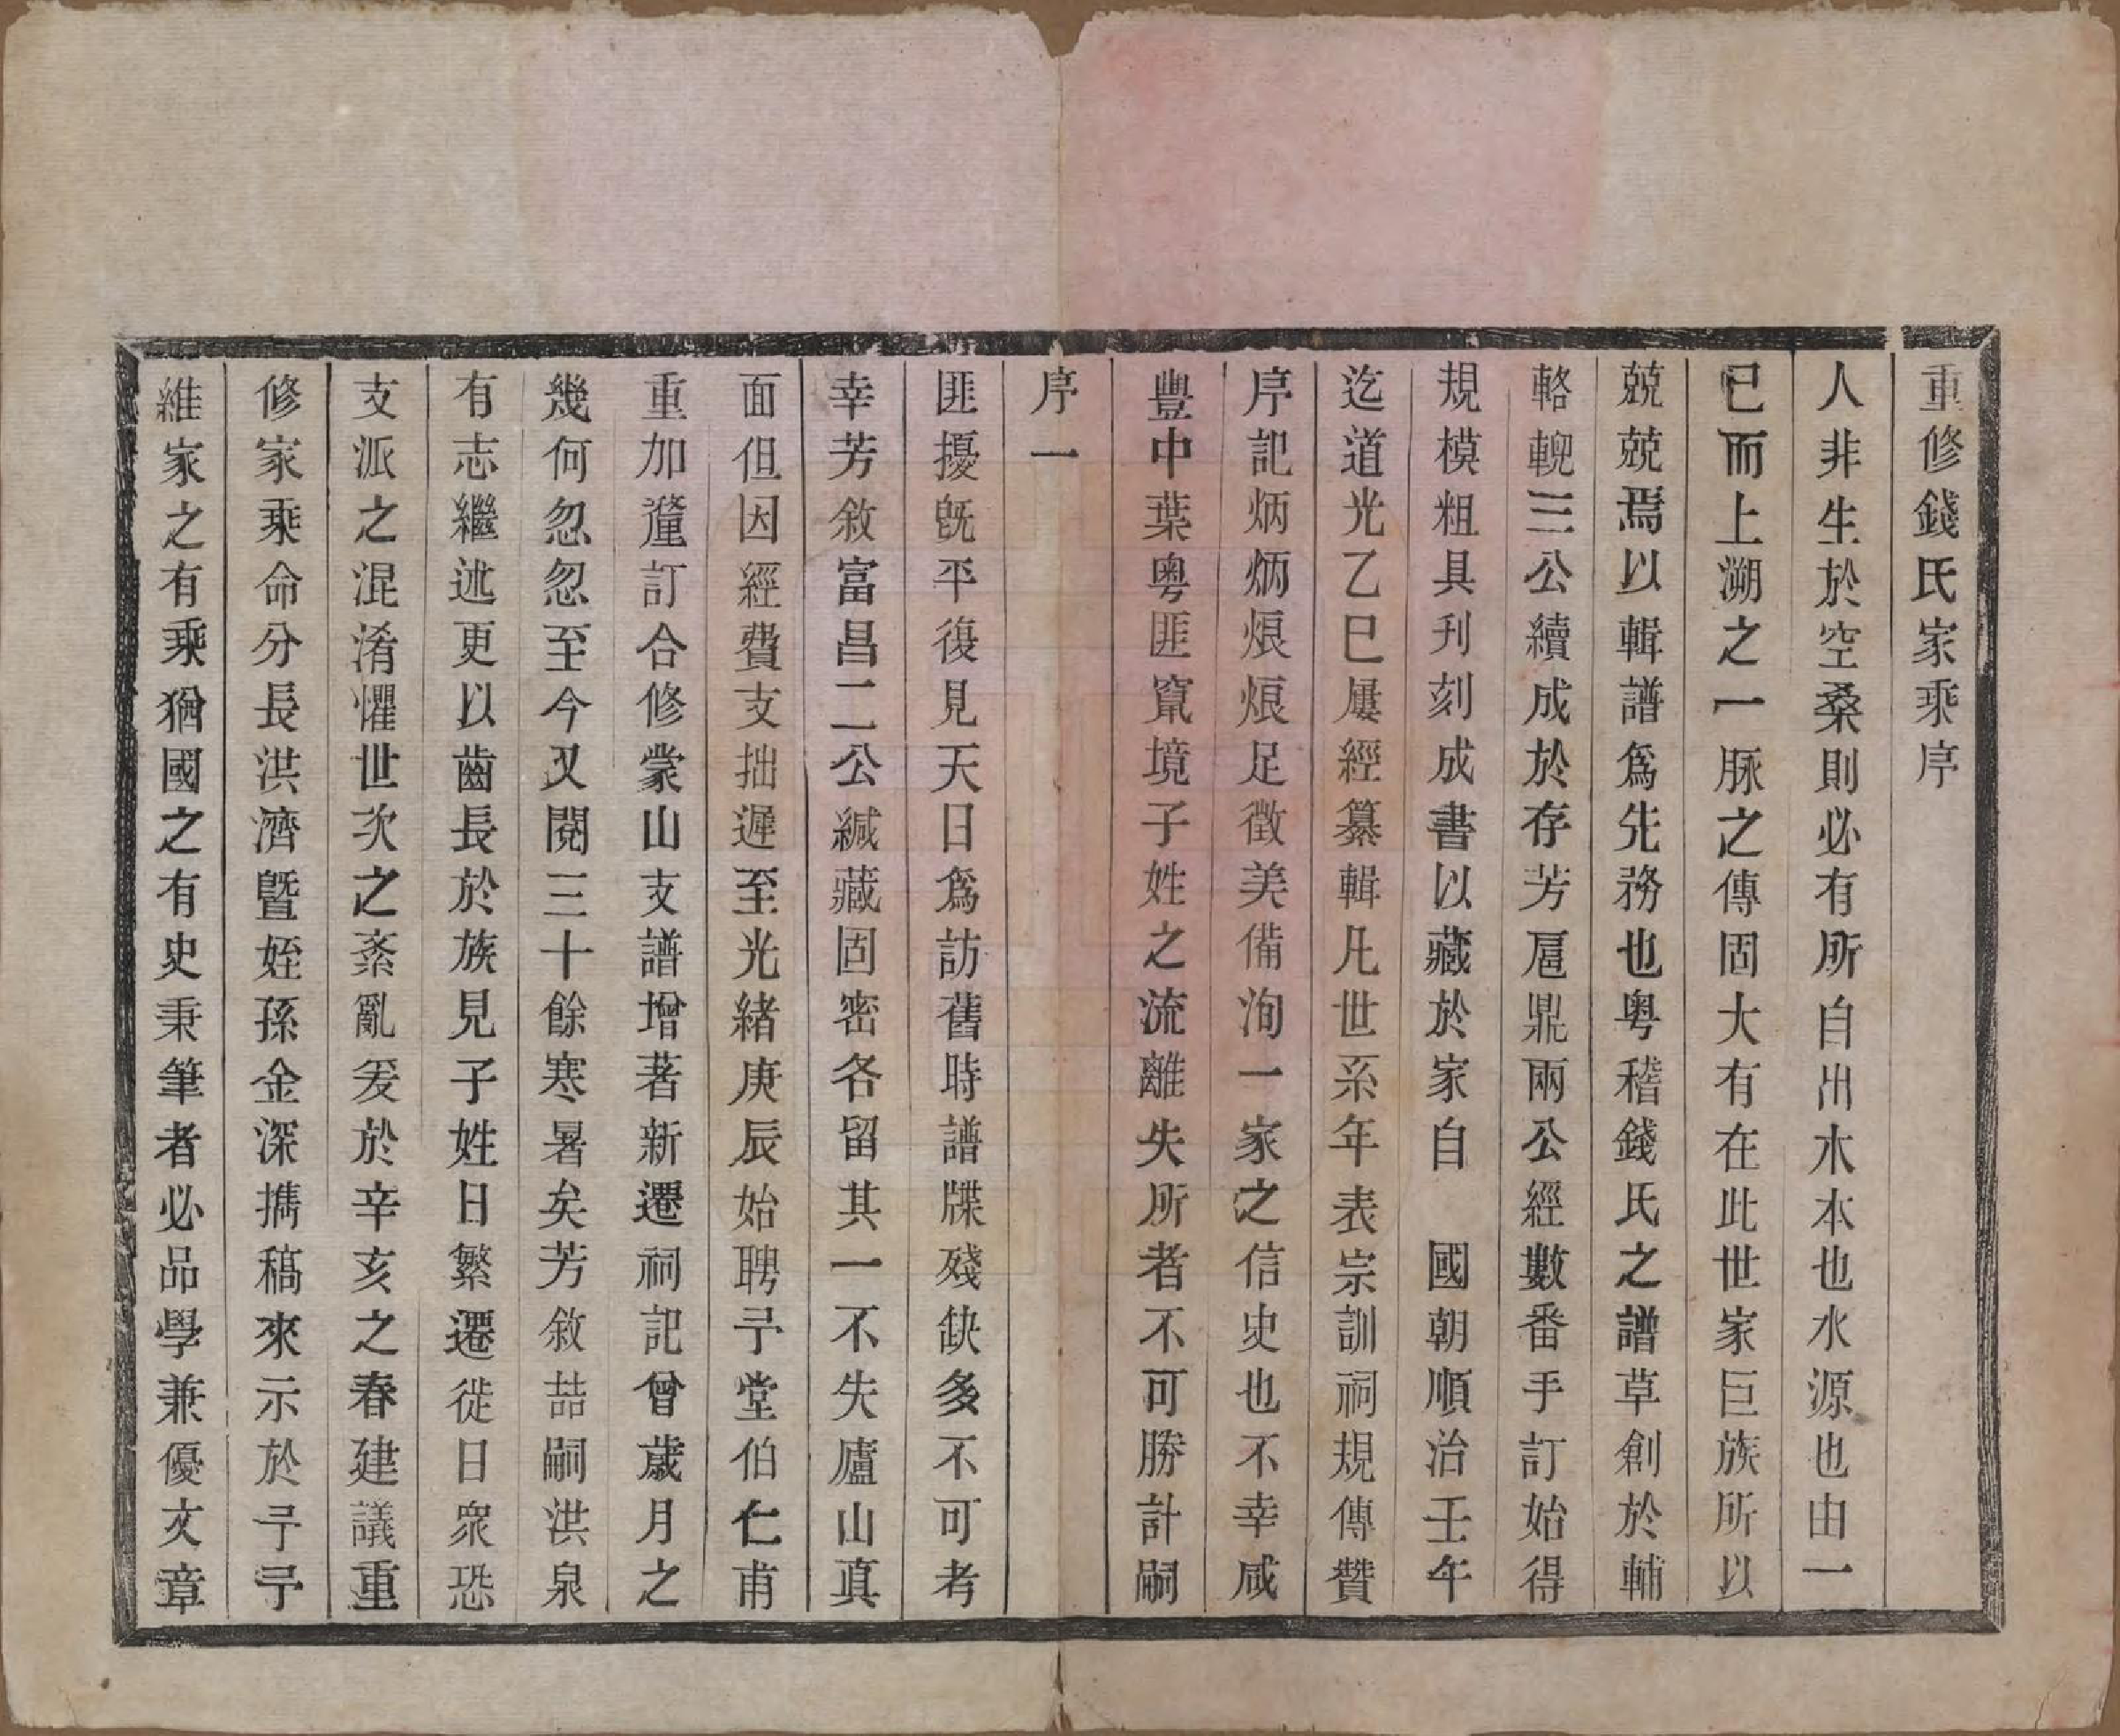 重修錢氏家乘序
人非生於空桑則必有所自出木本也水源也由一
已而上溯之一脉之傳固大有在此世家巨族所以
兢兢焉以輯譜爲先務也粵稽錢氏之譜草創於輔
輅輗三公續成於存芳扈鼎兩公經數番手訂始得
規模粗具刋刻成書以藏於家自　國朝順治壬午
迄道光乙巳屢經纂輯凡世系年表宗訓祠規傳贊
序記炳炳烺烺足徵美備洵一家之信史也不幸咸
豐中葉粵匪竄境子姓之流離失所者不可勝計嗣
序一
匪擾旣平復見天日爲訪舊時譜牒殘缺多不可考
幸芳敘富昌二公緘藏固密各留其一不失廬山真
面但因經費支拙遲至光緒庚辰始聘予堂伯仁甫
重加釐訂合修蒙山支譜增著新遷祠記曾歲月之
幾何忽忽至今又閱三十餘寒暑矣芳敘喆嗣洪泉
有志繼述更以齒長於族見子姓日繁遷徙日衆恐
支派之混淆懼世次之紊亂爰於辛亥之春建議重
修家乘命分長洪濟曁姪孫金深攜稿來示於予予
維家之有乘猶國之有史秉筆者必品學兼優文章